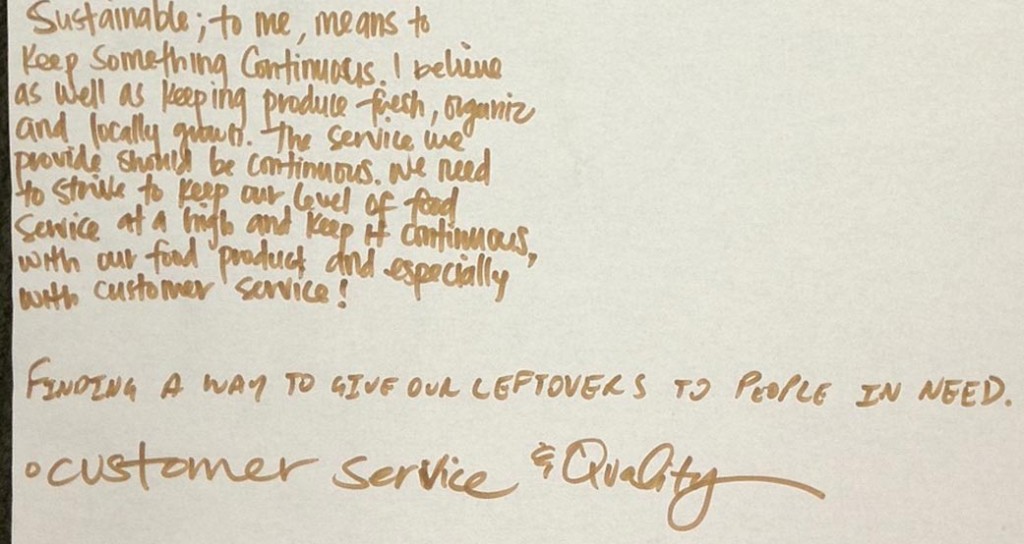 Sustainable; to me, means to
keep something continuous. I believe
as well as keeping produce fresh, organic
and locally grown. The service we
provide should be continuous. We need
to strive to keep our level of food
service at a high and keep it continuous,
with our food product and especially
with customer service!
FINDING A WAY TO GIVE OUR LEFTOVERS TO PEOPLE IN NEED.
• customer service & Quality